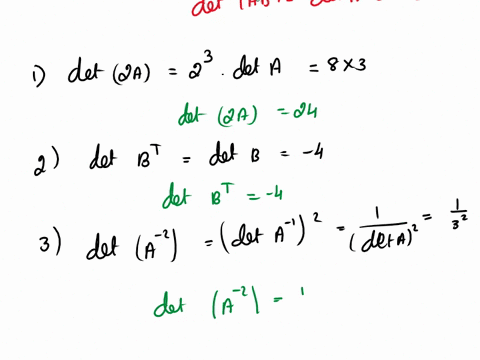 det (AB)
1) det (2A) = 2³ . det A = 8 × 3
det (2A) = 24
2) det Bᵀ = det B = -4
det Bᵀ = -4
3) det (A⁻²) = (det A⁻¹)² = 1/(det A)² = 1/3²
det (A⁻²) =